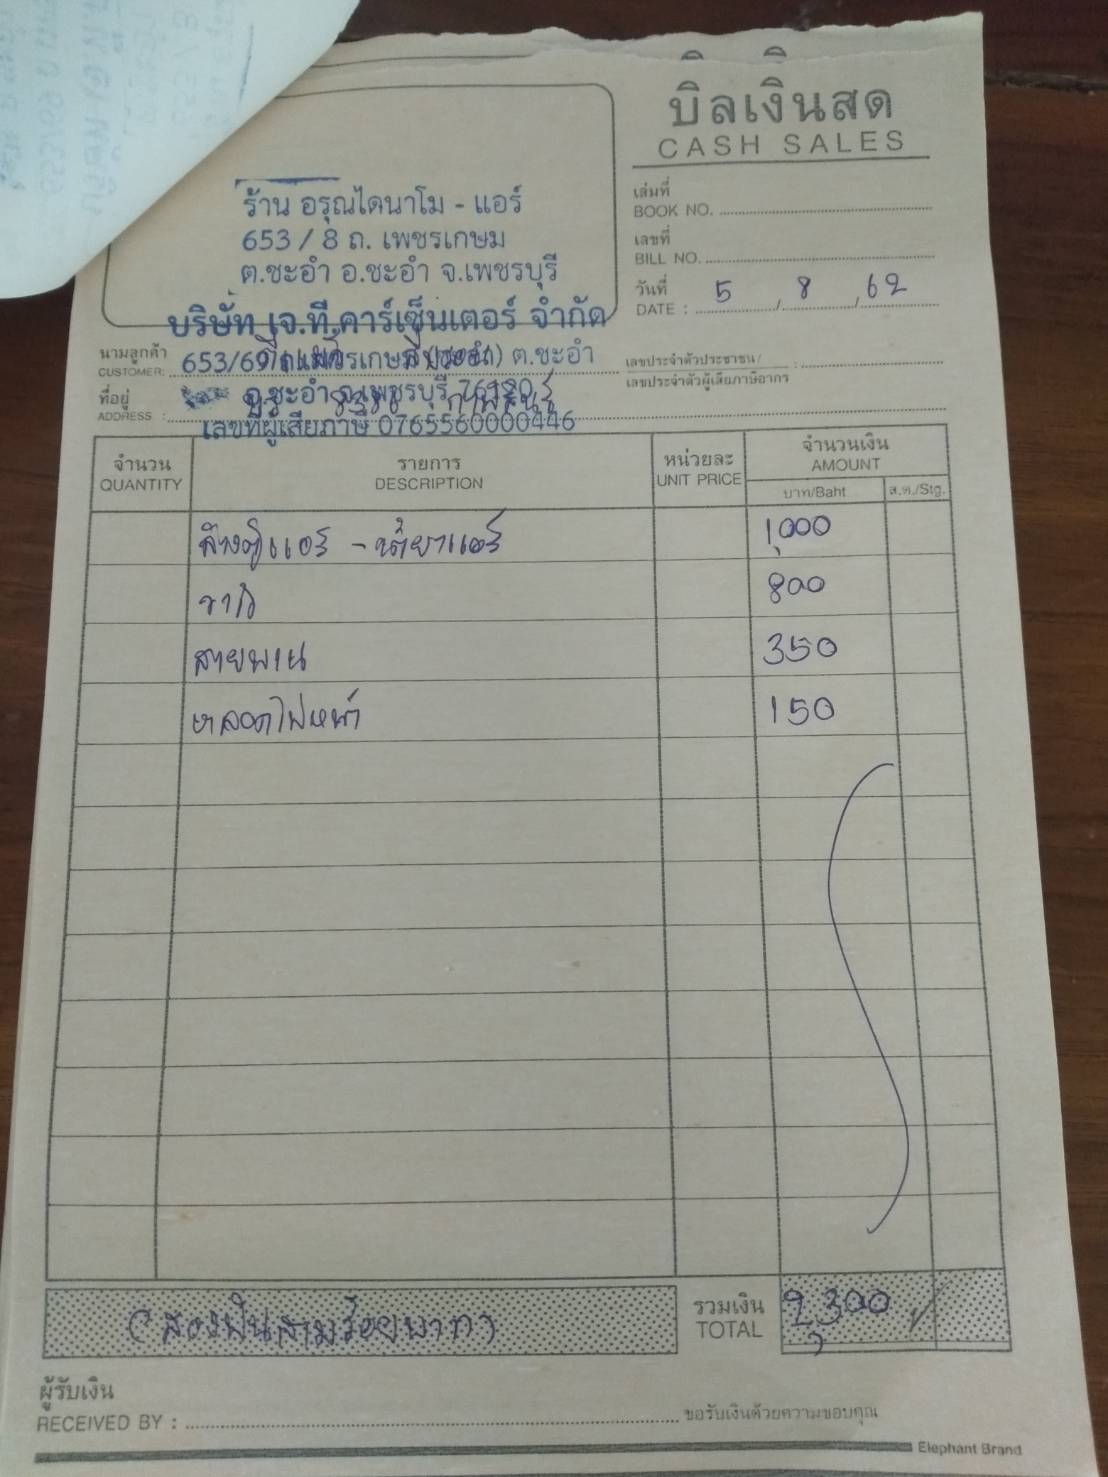 บิลเงินสด
CASH SALES
ร้าน อรุณไดนาโม - แอร์
653 / 8 ถ. เพชรเกษม
ต.ชะอำ อ.ชะอำ จ.เพชรบุรี
เล่มที่
BOOK NO.
เลขที่
BILL NO.
วันที่
DATE : 5 / 8 / 62
บริษัท เจ.ที.คาร์เซ็นเตอร์ จำกัด
นามลูกค้า
CUSTOMER:
653/69 ถ.เพชรเกษม ต.ชะอำ
เลขประจำตัวประชาชน/
เลขประจำตัวผู้เสียภาษีอากร
ที่อยู่
ADDRESS :
อ.ชะอำ จ.เพชรบุรี 76120
เลขที่ผู้เสียภาษี 0765560000446
จำนวน รายการ หน่วยละ จำนวนเงิน
QUANTITY DESCRIPTION UNIT PRICE AMOUNT
บาท/Baht ส.ต./Stg.
ล้างตู้แอร์ - น้ำยาแอร์ 1,000
วาล์ว 800
สายพาน 350
หลอดไฟหน้า 150
(สองพันสามร้อยบาท)
รวมเงิน
TOTAL 2,300
ผู้รับเงิน
RECEIVED BY : ขอรับเงินด้วยความขอบคุณ
Elephant Brand